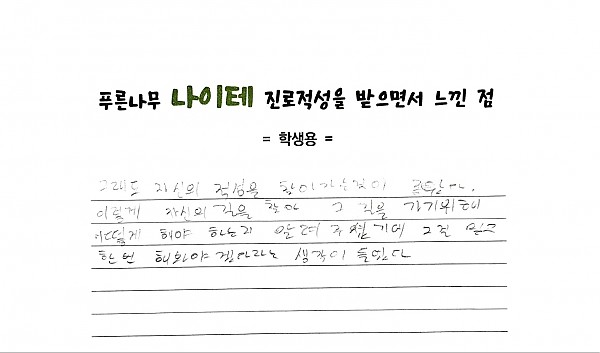 푸른나무 나이테 진로적성을 받으면서 느낀 점
= 학생용 =
그래도 자신의 적성을 찾아가는것이
이렇게 자신의 길을 찾아 그 길을 가기위해
어떻게 해야 하는지 알려 주셨기에 그걸 믿고
한번 해봐야 겠다라는 생각이 들었다